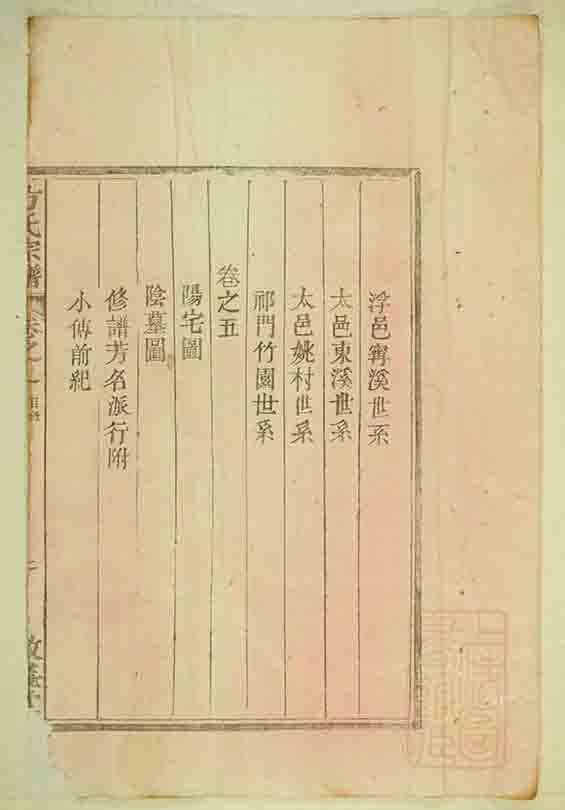 浮邑寗溪世系
太邑東溪世系
太邑姚村世系
祁門竹園世系
卷之五
陽宅圖
陰墓圖
修譜芳名派行附
小傳前紀
方氏宗譜
卷之一
目錄